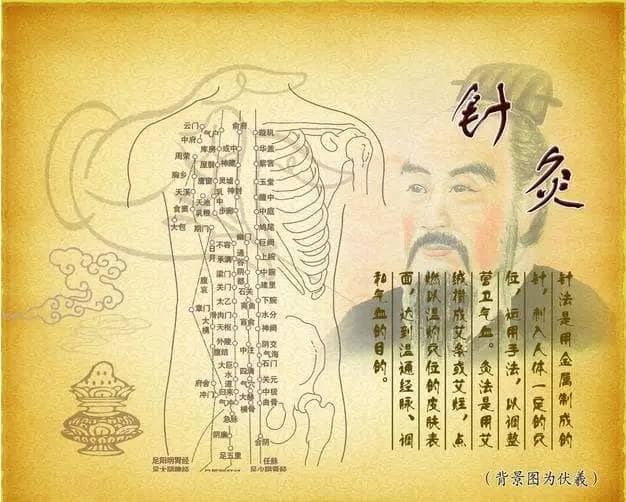 针灸
针法是用金属制成的
针，刺入人体一定的穴
位，运用手法，以调整
营卫气血。灸法是用艾
绒搓成艾条或艾炷，点
燃以温灼穴位的皮肤表
面，达到温通经脉、调
和气血的目的。
（背景图为伏羲）
云门
中府
周荣
胸乡
天溪
食窦
大包
气户
库房
屋翳
膺窗
乳中
乳根
天池
期门
日月
腹哀
章门
大横
腹结
府舍
冲门
俞府
彧中
神藏
灵墟
神封
步廊
不容
承满
梁门
关门
太乙
滑肉门
天枢
外陵
大巨
水道
归来
气冲
急脉
阴廉
足五里
幽门
通谷
阴都
石关
商曲
肓俞
中注
四满
气穴
大赫
横骨
璇玑
华盖
紫宫
玉堂
膻中
中庭
鸠尾
巨阙
上脘
中脘
建里
下脘
水分
神阙
阴交
气海
石门
关元
中极
曲骨
会阴
足阳明胃经
足太阴脾经
任脉
足少阴肾经